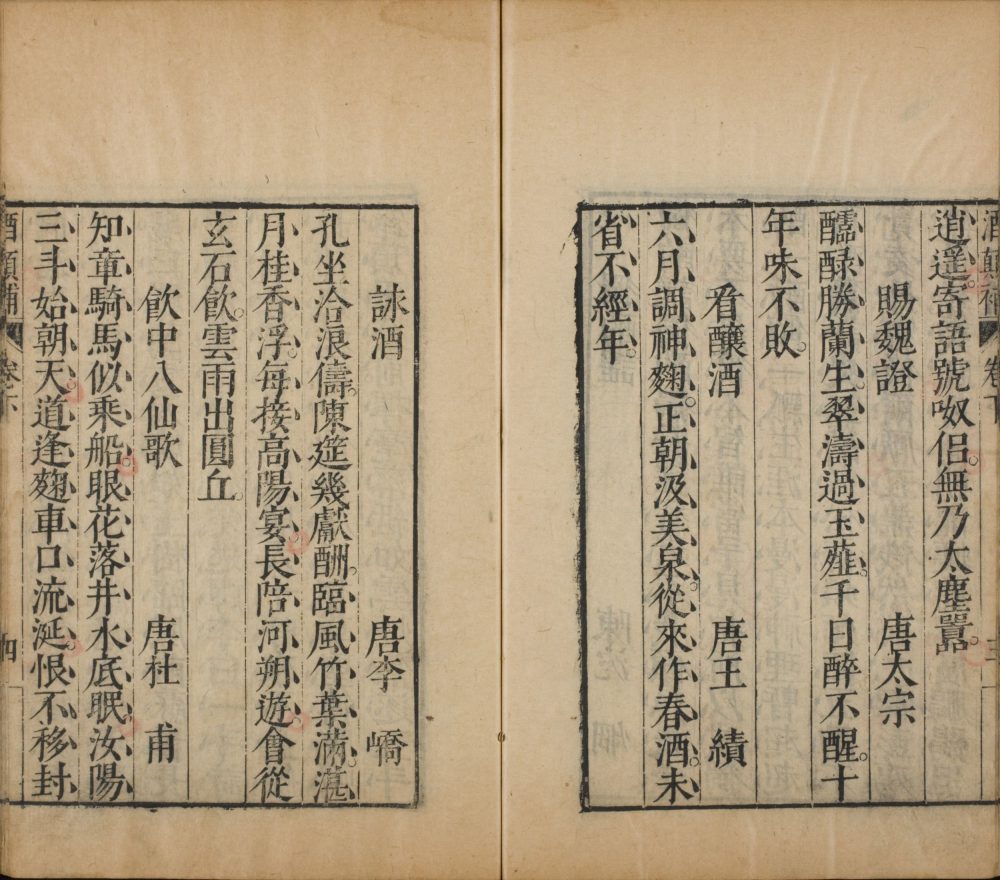 酒顛補 卷下 三
逍遥寄語號呶侣。無乃太塵囂。
賜魏證 唐太宗
醽醁勝蘭生翠濤過玉薤。千日醉不醒。十
年味不敗。
看釀酒 唐王績
六月調神麴。正朝汲美泉。從來作春酒。未
省不經年。
詠酒 唐李嶠
孔坐洽良儔。陳筵幾獻酬。臨風竹葉滿。湛
月桂香浮。每接高陽宴。長陪河朔遊。會從
玄石飲。雲雨出圓丘。
飲中八仙歌 唐杜甫
知章騎馬似乗船。眼花落井水底眠。汝陽
三斗始朝天。道逢麴車口流涎。恨不移封
酒顛補 卷下 四